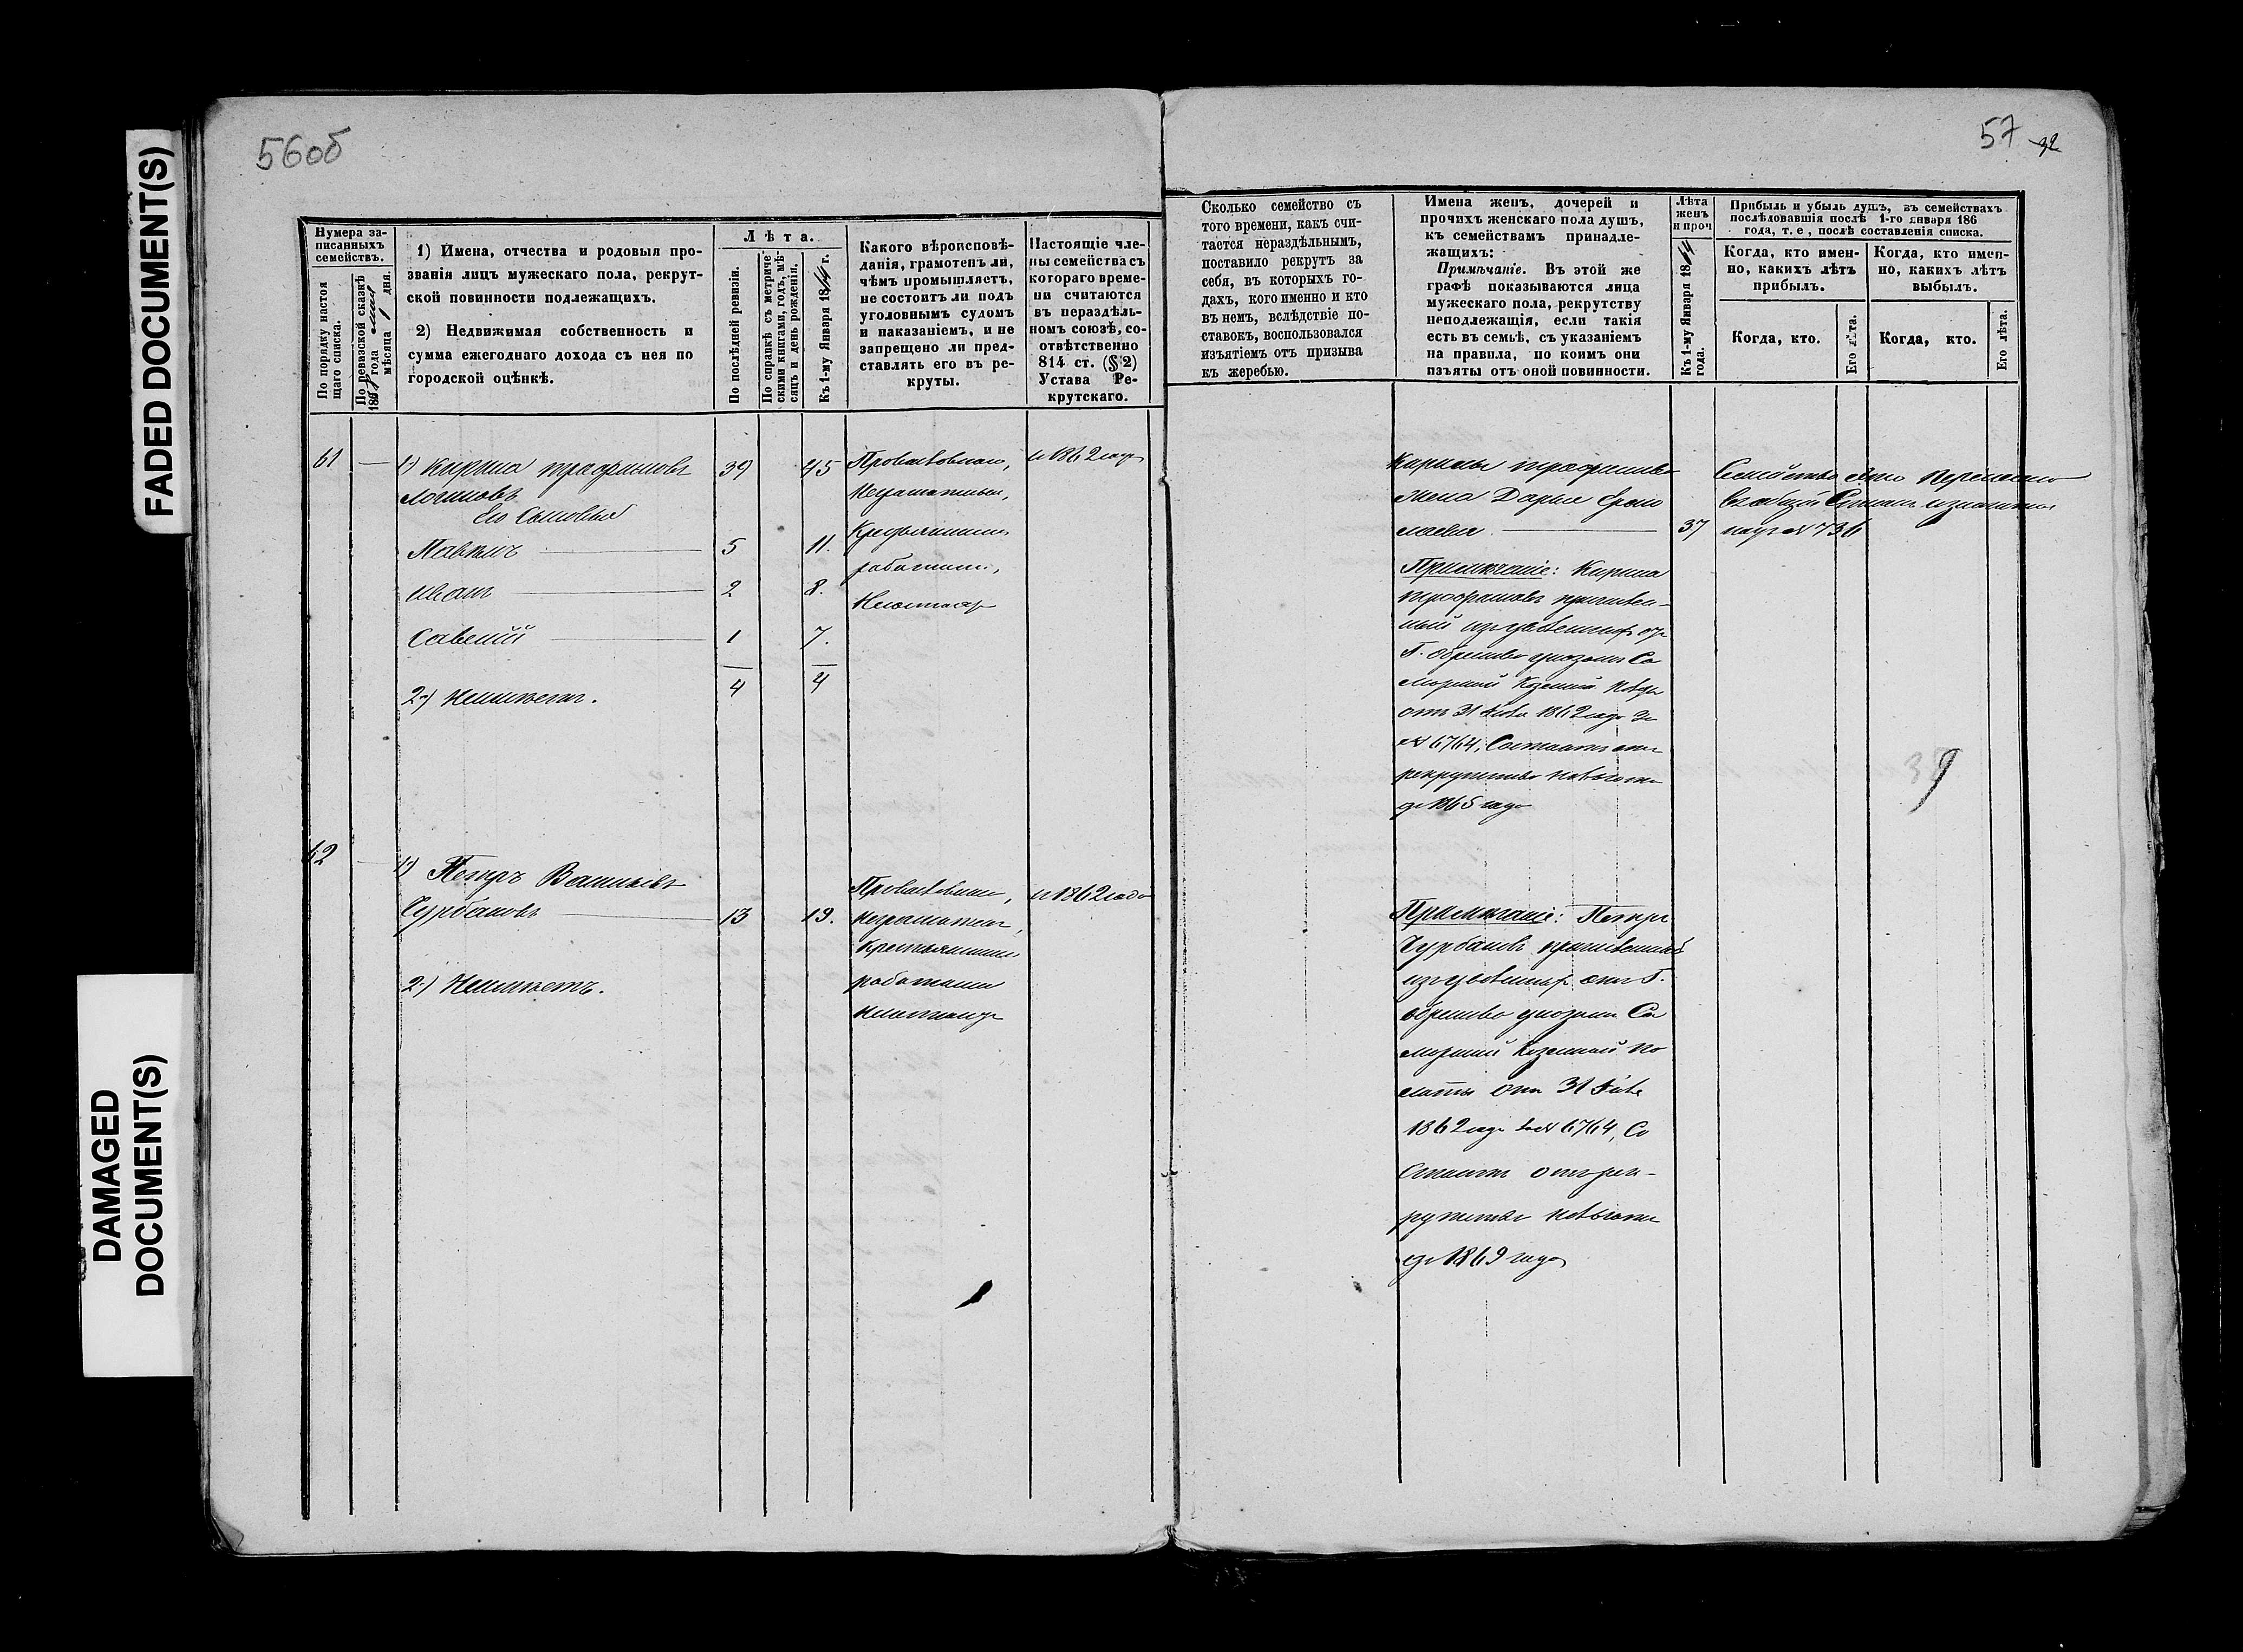 FADED DOCUMENT(S)
DAMAGED
DOCUMENT(S)
56об
Нумера за-
писанныхъ
семействъ.
По порядку настоя
щаго списка.
По ревизской сказкѣ
1858 года
мѣсяца 1 дня.
1) Имена, отчества и родовыя про-
званія лицъ мужескаго пола, рекрут-
ской повинности подлежащихъ.
2) Недвижимая собственность и
сумма ежегоднаго дохода съ нея по
городской оцѣнкѣ.
Лѣта.
По послѣдней ревизіи.
По справкѣ съ метриче-
скими книгами, годъ, мѣ-
сяцъ и день рожденія.
Къ 1-му Января 1864 г.
Какого вѣроисповѣ-
данія, грамотенъ ли,
чѣмъ промышляетъ,
не состоитъ ли подъ
уголовнымъ судомъ
и наказаніемъ, и не
запрещено ли пред-
ставлять его въ ре-
круты.
Настоящіе чле-
ны семейства съ
котораго време-
ни считаются
въ нераздѣль-
номъ союзѣ, со-
отвѣтственно
814 ст. (§ 2)
Устава Ре-
крутскаго.
61 — 1) Кирила Трофимовъ 39 45 Православнаго, съ 1862 года
Логиновъ Неграмотенъ,
Его Сыновья
Павелъ 5 11. Крестьянинъ
работаетъ,
Иванъ 2 8.
Савелій 1 7.
4 4
2) Неимѣетъ.
62 — 1) Петръ Васильевъ Православнаго, съ 1862 года
Чурбановъ 13 19. Неграмотенъ,
Крестьянинъ
2) Неимѣетъ. работаетъ
57
32
Сколько семейство съ
того времени, какъ счи-
тается нераздѣльнымъ,
поставило рекрутъ за
себя, въ которыхъ го-
дахъ, кого именно и кто
въ немъ, вслѣдствіе по-
ставокъ, воспользовался
изъятіемъ отъ призыва
къ жеребью.
Имена женъ, дочерей и
прочихъ женскаго пола душъ,
къ семействамъ принадле-
жащихъ:
Примѣчаніе. Въ этой же
графѣ показываются лица
мужескаго пола, рекрутству
неподлежащія, если такія
есть въ семьѣ, съ указаніемъ
на правила, по коимъ они
изъяты отъ оной повинности.
Лѣта
женъ
и проч
Къ 1-му Января 1864
года.
Прибыль и убыль душъ, въ семействахъ
послѣдовавшія послѣ 1-го января 186
года, т. е, послѣ составленія списка.
Когда, кто имен-
но, какихъ лѣтъ
прибылъ.
Когда, кто имен-
но, какихъ лѣтъ
выбылъ.
Когда, кто.
Его лѣта.
Когда, кто.
Его лѣта.
Кирилы Трофимова Семейство это перенесено
жена Дарья Ермо въ общій Списокъ
лаева 37 подъ № 736
Примѣчаніе: Кирила
Трофимовъ причислен-
ный изъ удѣльныхъ, отъ
Г. Обрешва указомъ Са
марской Казенной Палаты
отъ 31 1862 года за
№ 6764, Состоитъ отъ
рекрутства льготы
до 1865 года
39
Примѣчаніе: Петръ
Чурбановъ причисленный
изъ удѣльныхъ отъ Г.
указомъ Са
марской Казенной Па
латы отъ 31
1862 года за № 6764, Со
стоитъ отъ рек-
рутства
до 1869 года